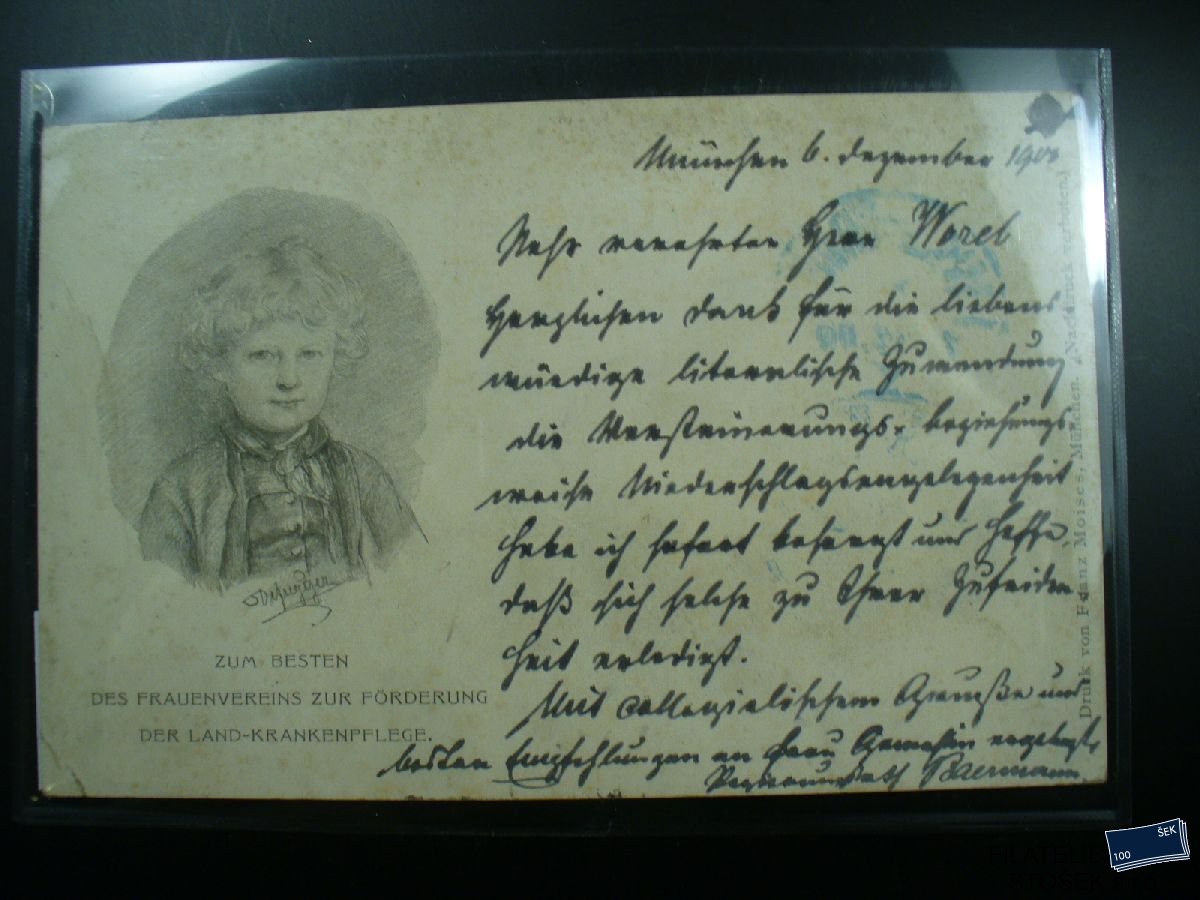 München 6. Dezember 1900
Sehr verehrter Herr Worel
Herzlichen Dank für die liebens
würdige literarische Zuwendung
die Versteinerungs- beziehungs
weise Niederschlagsangelegenheit
habe ich sofort besorgt und hoffe,
daß sich solche zu Ihrer Zufrieden
heit erledigt.
Mit collegialischem Gruße und
besten Empfehlungen an Frau Gemahlin ergebenst
Baermann
ZUM BESTEN
DES FRAUENVEREINS ZUR FÖRDERUNG
DER LAND-KRANKENPFLEGE.
Druck von Franz Moises, München. (Nachdruck verboten.)
100 ŠEK
FILATELIE
STOŠEK